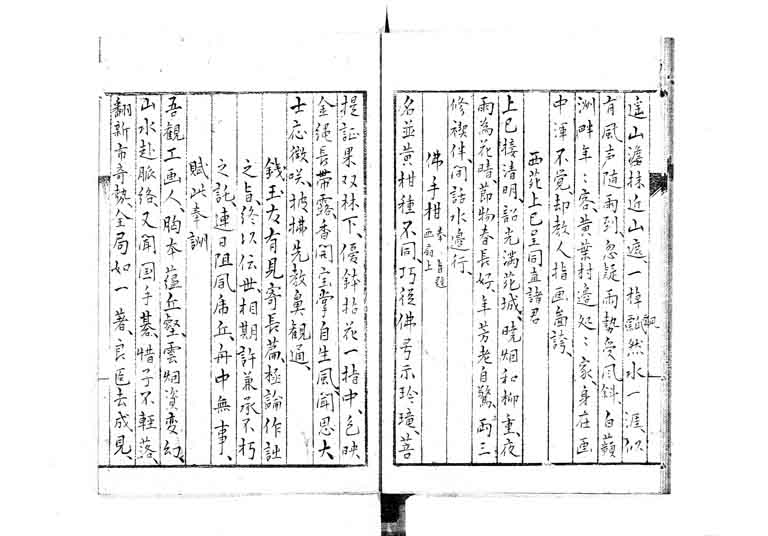 遠山澹抹近山遮一棹飄然水一涯似
飄
有風声随雨到忽疑雨勢受风斜白蘋
洲畔年〻客黄葉村邊処〻家身在画
中渾不覚却教人指画啚誇
西苑上巳呈同直諸君
上巳接清明韶光满苑城晓烟和柳重夜
雨為花晴節物春長好年芳老自驚両三
修禊伴间話水邊行
佛手柑奉旨題西扇上
名並黄柑種不同巧從佛号示玲瓏菩
提証果双林下優鉢拈花一指中色映
金绳長帶露香闻宝掌自生風闻思大
士应微咲披拂先教鼻観通
錢玉友有見寄長篇極論作詩
之旨终以伝世相期許兼承不朽
之託連日阻風甫丘舟中無事
賦此奉訓
吾観工画人胸本蕴丘壑雲烟資变幻
山水赴脈络又闻国手碁惜子不軽落
翻新布奇势全局如一著良匠去成見